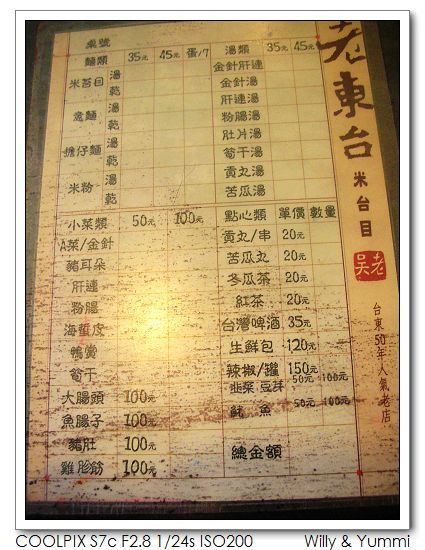 老東台
米台目
吳老
台東50年人氣老店
桌號
麵類 35元 45元 蛋/7
米苔目 湯
乾
意麵 湯
乾
擔仔麵 湯
乾
米粉 湯
乾
湯類 35元 45元
金針肝連
金針湯
肝連湯
粉腸湯
肚片湯
筍干湯
貢丸湯
苦瓜湯
小菜類 50元 100元
A菜/金針
豬耳朵
肝連
粉腸
海蜇皮
鴨賞
筍干
大腸頭 100元
魚腸子 100元
豬肚 100元
雞胗筋 100元
點心類 單價 數量
貢丸/串 20元
苦瓜丸 20元
冬瓜茶 20元
紅茶 20元
台灣啤酒 35元
生鮮包 120元
辣椒/罐 150元
韭菜.豆芽 50元 100元
魷魚 50元 100元
總金額
COOLPIX S7c F2.8 1/24s ISO200 Willy & Yummi